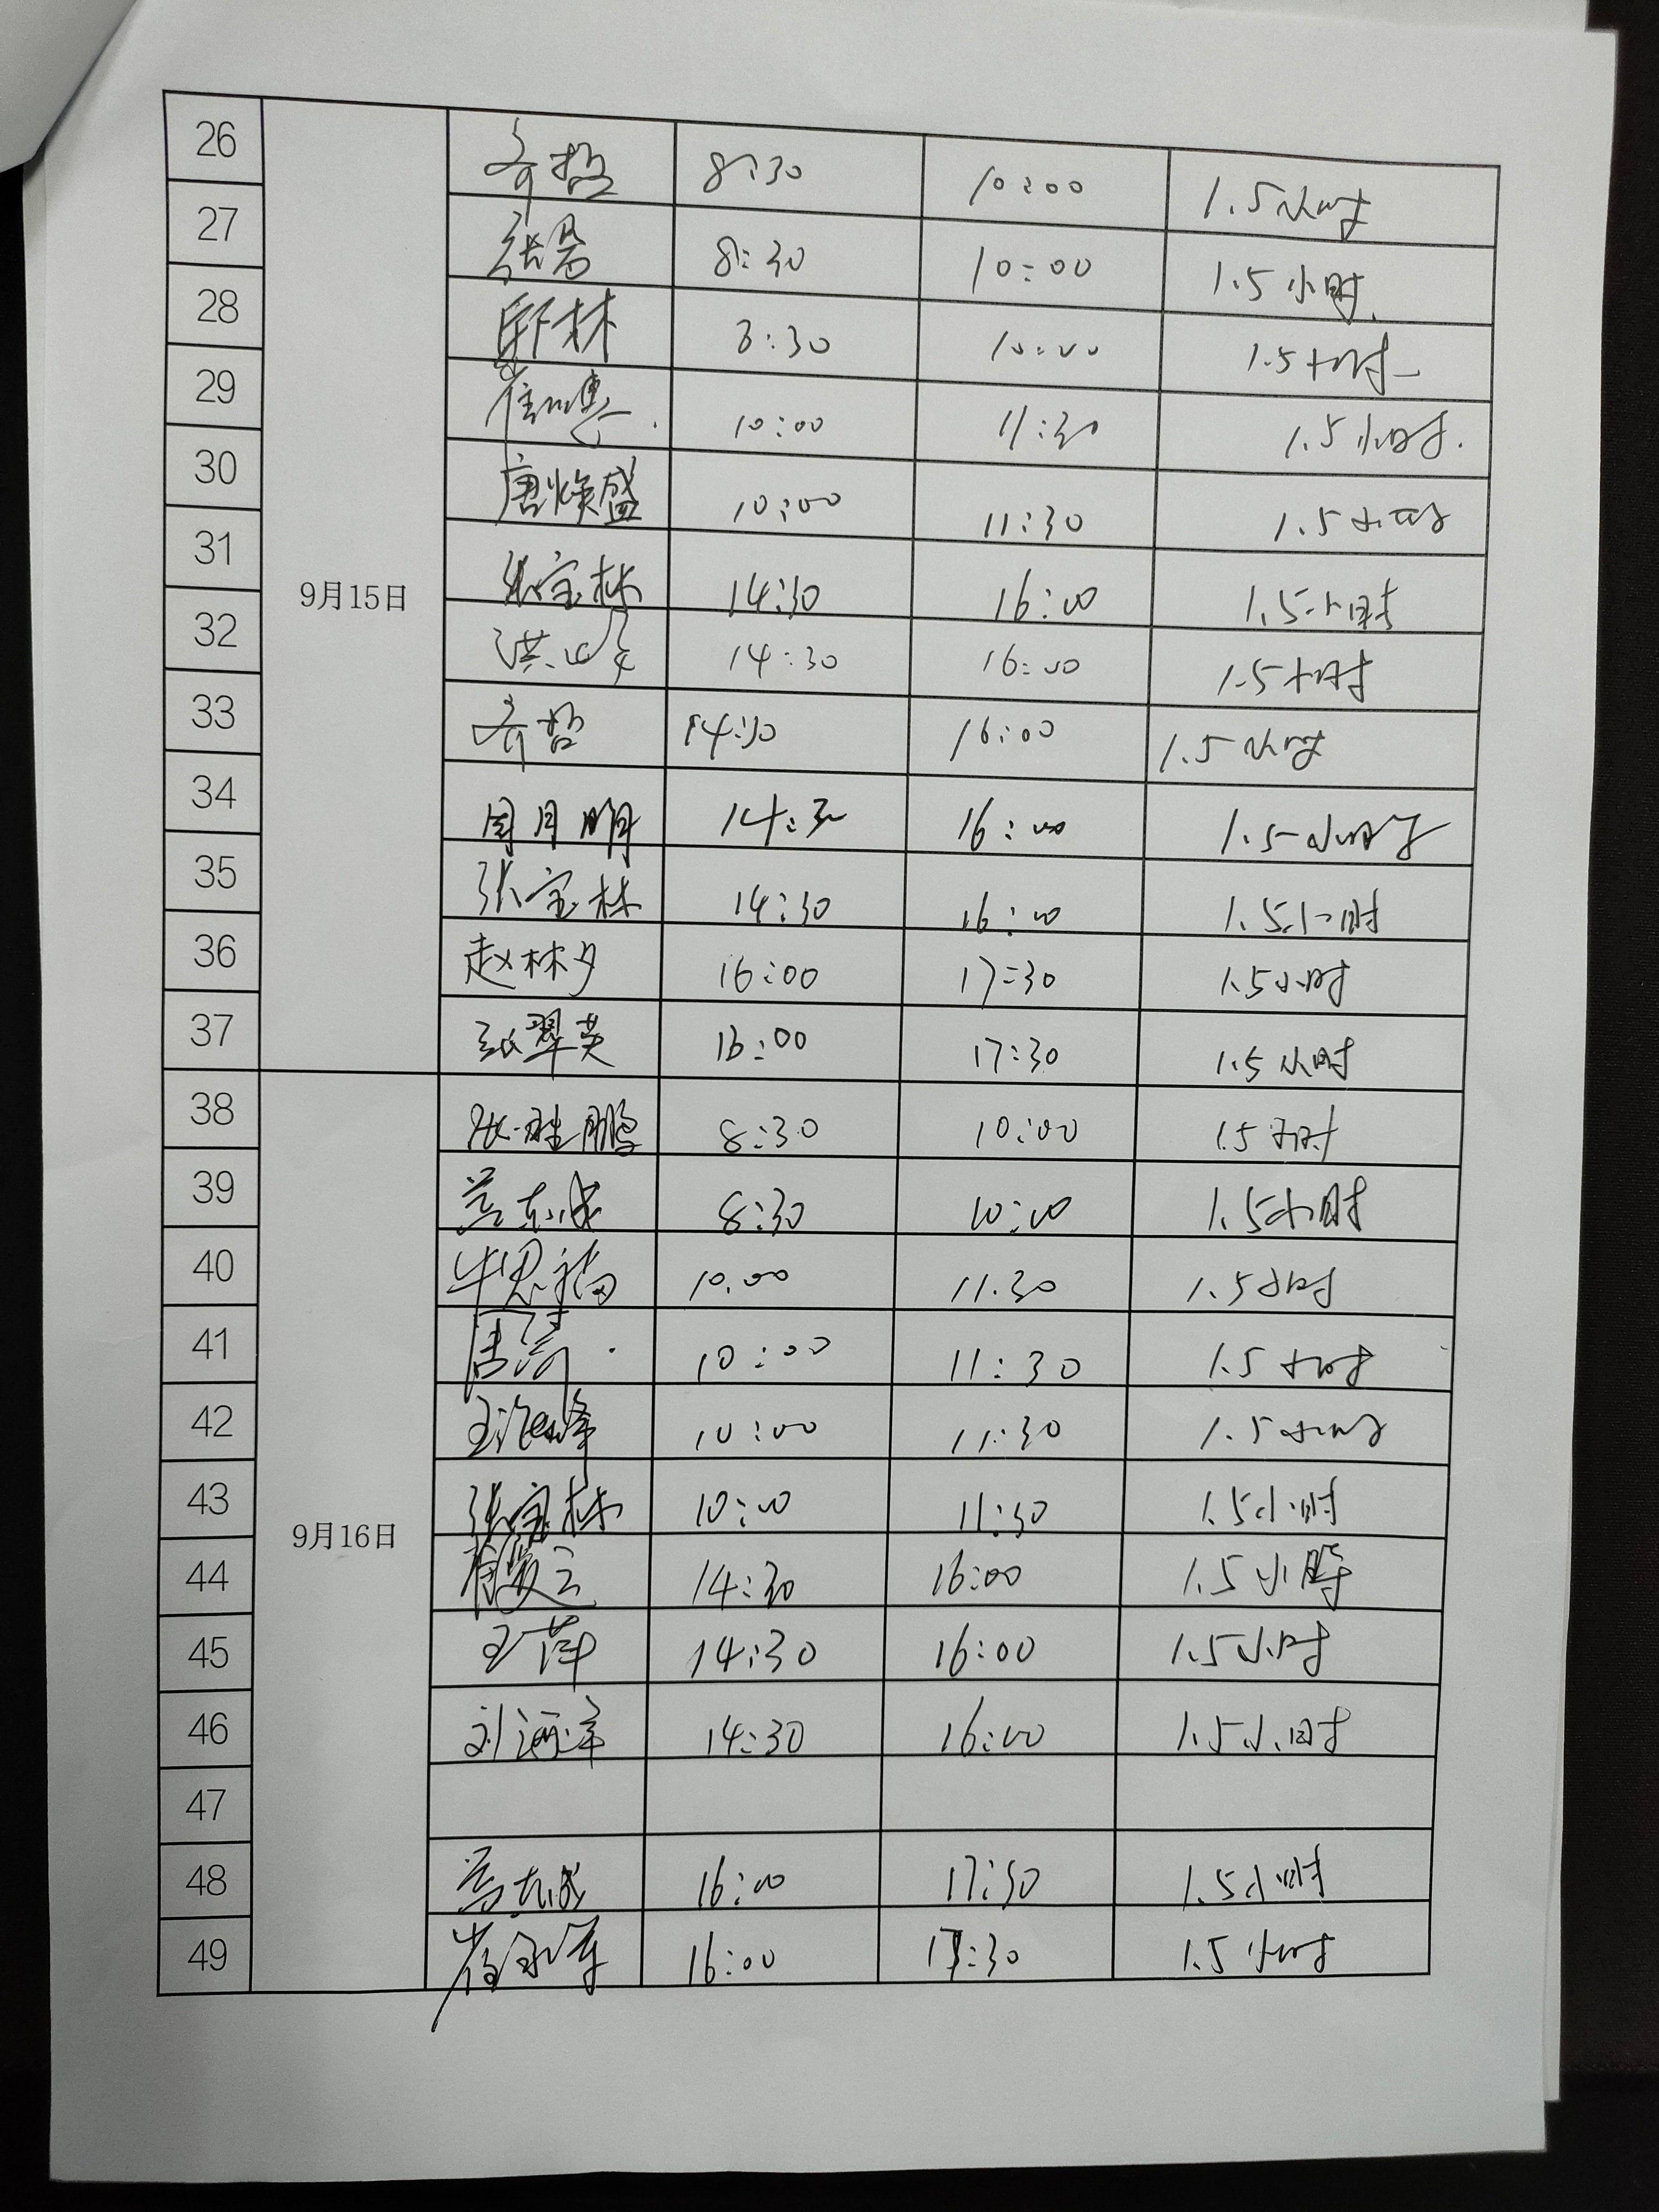 26 齐哲 8:30 10:00 1.5小时
27 8:30 10:00 1.5小时
28 林 8:30 10:00 1.5小时
29 10:00 11:30 1.5小时.
30 唐焕盛 10:00 11:30 1.5小时
9月15日
31 张宝林 14:30 16:00 1.5小时
32 洪 14:30 16:00 1.5小时
33 齐哲 14:30 16:00 1.5小时
34 周月明 14:30 16:00 1.5小时
35 张宝林 14:30 16:00 1.5小时
36 赵林夕 16:00 17:30 1.5小时
37 张翠英 16:00 17:30 1.5小时
38 张胜鹏 8:30 10:00 1.5小时
39 8:30 10:00 1.5小时
40 毕思福 10.00 11.30 1.5小时
41 10:00 11:30 1.5小时
42 王 峰 10:00 11:30 1.5小时
43 张宝林 10:00 11:30 1.5小时
9月16日
44 14:30 16:00 1.5小時
45 王萍 14:30 16:00 1.5小时
46 刘海洋 14:30 16:00 1.5小时
47
48 16:00 17:30 1.5小时
49 16:00 17:30 1.5小时